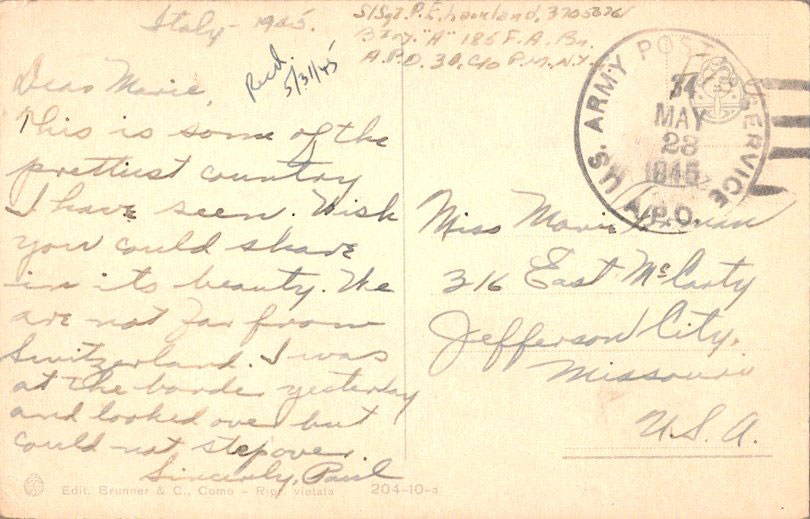 Italy - 1945.
S/Sgt. P.E.
Btry. "A" 185 F.A. Bn.
A.P.O. 34, c/o P.M. N.Y.
Recd.
5/31/45
Dear Marie,
This is some of the
prettiest country
I have seen. Wish
you could share
in its beauty. We
are not far from
Switzerland. I was
at the border yesterday
and looked over but
could not step over.
Sincerly, Paul
U.S. ARMY POSTAL SERVICE
A.P.O.
34
MAY
28
1945
Miss Marie
316 East McCarty
Jefferson City,
Missouri
U.S.A.
Edit. Brunner & C., Como - Ripr. vietata 204-10-a